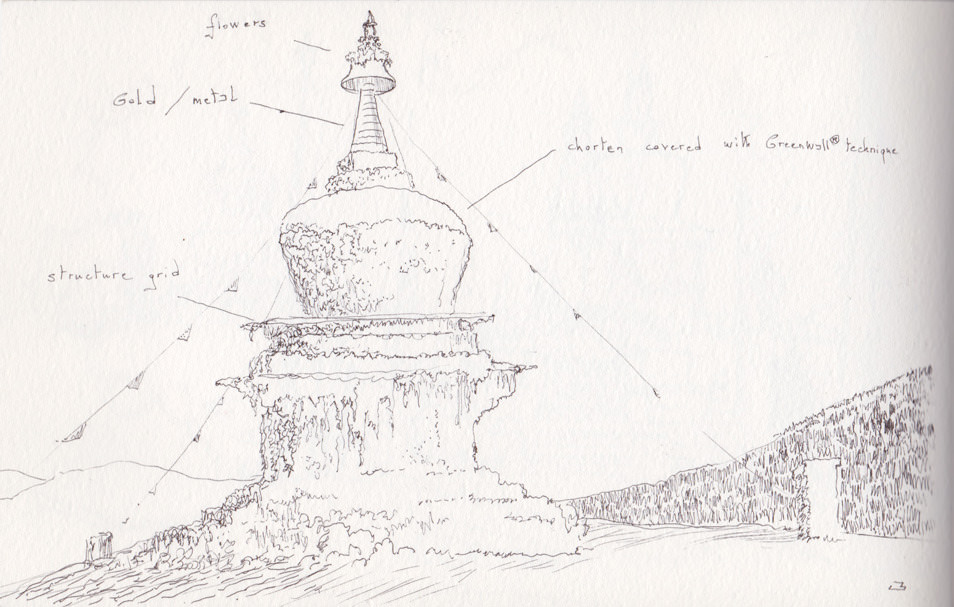 flowers
Gold / metal
chorten covered with Greenwall® technique
structure grid